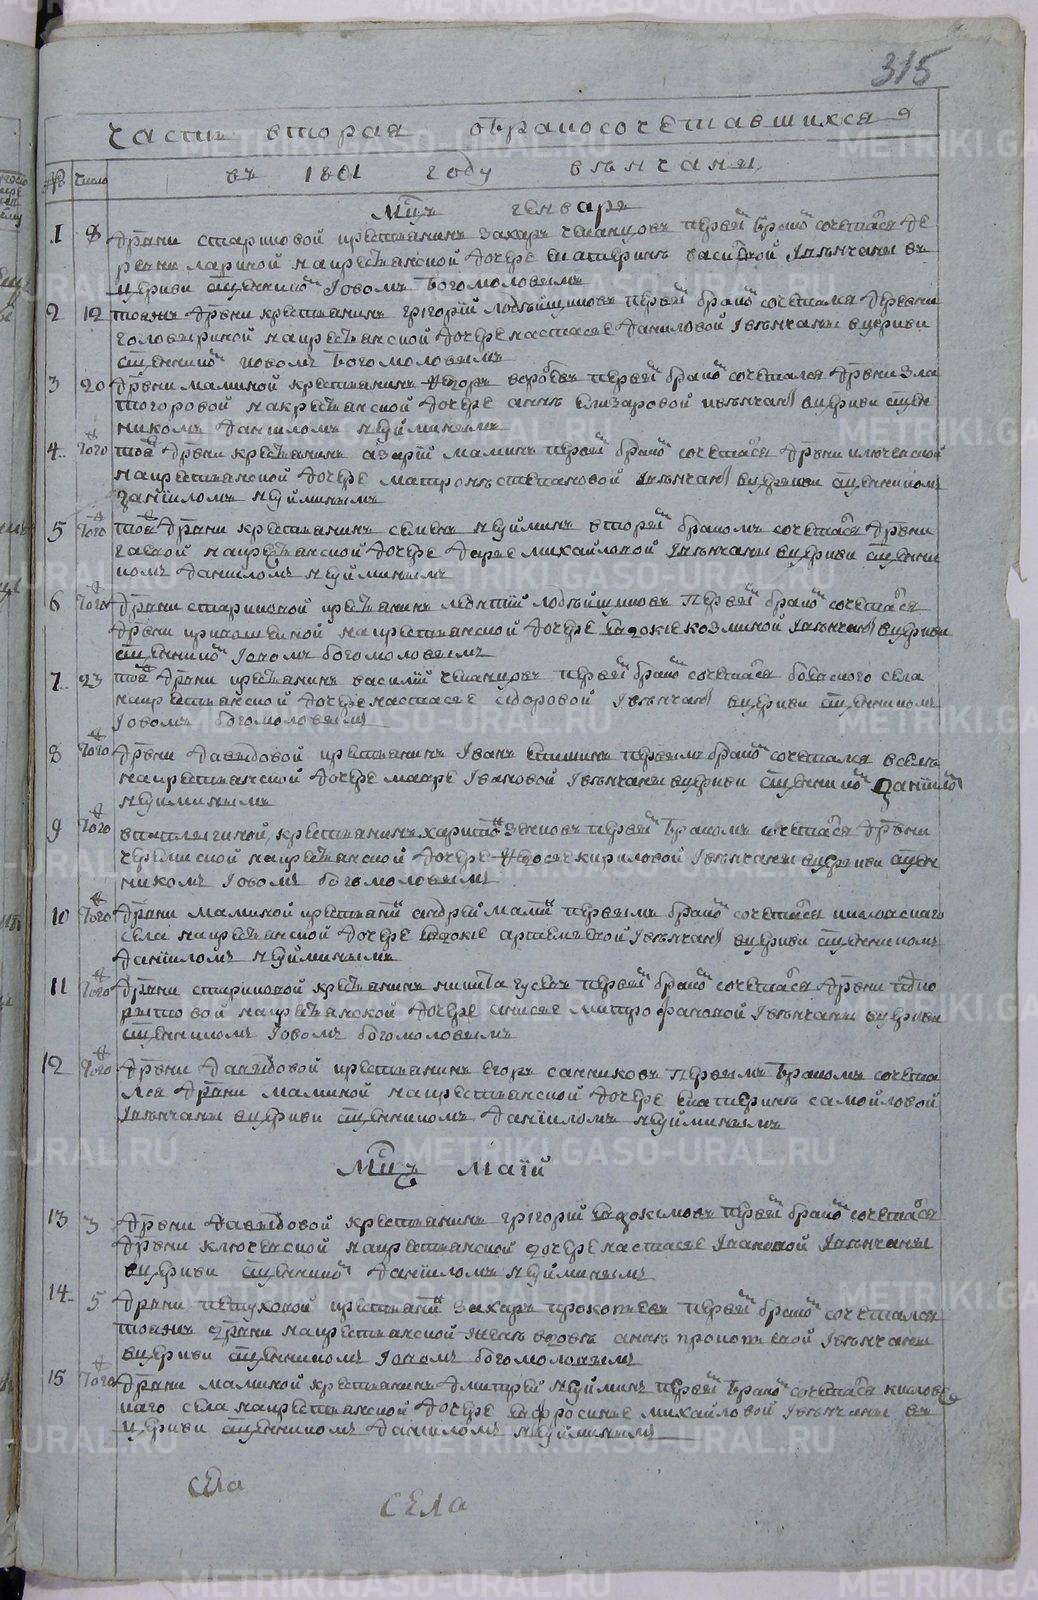 315
часть вторая обракосочетавшихся
№ число въ 1801 году венчаны
Мцъ генваря
1 8 дрвни стариковой крестьянинъ захаръ первый бракомъ сочетался де
ревни лариной накрестьянской дочере екатерине васильевой Iвенчаны въ
церкви священникомъ Iовомъ Богомоловымъ
2 12 тояжъ дрвни крестьянинъ григорiй первый бракомъ сочетался деревни
головыриной накрестьянской дочере настасье даниловой Iвенчаны вцеркви
священникомъ иовомъ Богомоловымъ
3 20 дрвни малиной крестьянинъ егоръ воробевъ первый бракомъ сочетался дрвни зла
тогоровой накрестьянской дочере анне елизаровой ивенчаны вцеркви священ
никомъ Данииломъ Неуйминымъ
4 того тояж дрвни крестьянинъ азарiй малинъ первый бракомъ сочетался дрвни ключевской
накрестьянской дочере матроне степановой Iвенчаны вцеркви священникомъ
Данiиломъ Неуйминымъ
5 того тояж дрвни крестьянинъ семенъ Неуйминъ вторый бракомъ сочетался дрвни
гаевой накрестьянской дочере дарье михайловой Iвенчаны вцеркви священни
комъ Данииломъ Неуйминымъ
6 того дрвни стариковой крестьянинъ леонтiй первый бракомъ сочетался
дрвни накрестьянской дочере евдокiе козминой Iвенчаны вцеркви
священникомъ Iовомъ богомоловымъ
7 23 тояж дрвни крестьянинъ василiй первый бракомъ сочетался села
накрестьянской дочере настасье сидоровой Iвенчаны вцеркви священникомъ
Iовомъ богомоловымъ
8 того дрвни давыдовой крестьянинъ Iванъ первымъ бракомъ сочетался
накрестьянской дочере мавре Iвановой Iвенчаны вцеркви священникомъ Данiиломъ
Неуйминымъ
9 того крестьянинъ харитонъ первый бракомъ сочетался дрвни
черемисской накрестьянской дочере федосье кириловой Iвенчаны вцеркви священ
никомъ Iовомъ богомоловымъ
10 того дрвни малиной крестьянинъ андрей малинъ первымъ бракомъ сочетался кисловскаго
села накрестьянской дочере евдокiе артемьевой Iвенчаны вцеркви священникомъ
Данiиломъ Неуйминымъ
11 того дрвни стариковой крестьянинъ никита гусевъ первый бракомъ сочетался дрвни
накрестьянской дочере анисье митрофановой Iвенчаны вцеркви
священникомъ Iовомъ богомоловымъ
12 того дрвни давыдовой крестьянинъ егоръ санниковъ первымъ бракомъ сочета
лся дрвни малиной накрестьянской дочере екатерине самойловой
Iвенчаны вцеркви священникомъ Данiиломъ Неуйминымъ
Мцъ маiй
13 3 дрвни давыдовой крестьянинъ григорiй евдокимовъ первый бракомъ сочетался
дрвни ключевской накрестьянской дочере настасье Iвановой Iвенчаны
вцеркви священникомъ Данiиломъ Неуйминымъ
14 5 дрвни петуховой крестьянинъ захаръ прокопьевъ первый бракомъ сочетался
тояжъ дрвни накрестьянской жене вдове анне прокопьевой Iвенчаны
вцеркви священникомъ Iовомъ богомоловымъ
15 того дрвни малиной крестьянинъ дмитрей Неуйминъ первый бракомъ сочетался кисловс
каго села накрестьянской дочере ефросинье михайловой Iвенчаны въ
церкви священникомъ Данииломъ Неуйминымъ
села
села
METRIKI.GASO-URAL.RU